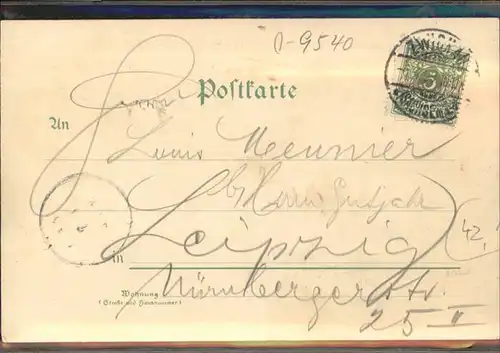 0-9540
Postkarte
5
An
Herrn
Louis Meunier
b/ Herrn Gutjahr
in Leipzig
42.
Wohnung
(Straße und Hausnummer)
Nürnbergerstr.
25 II